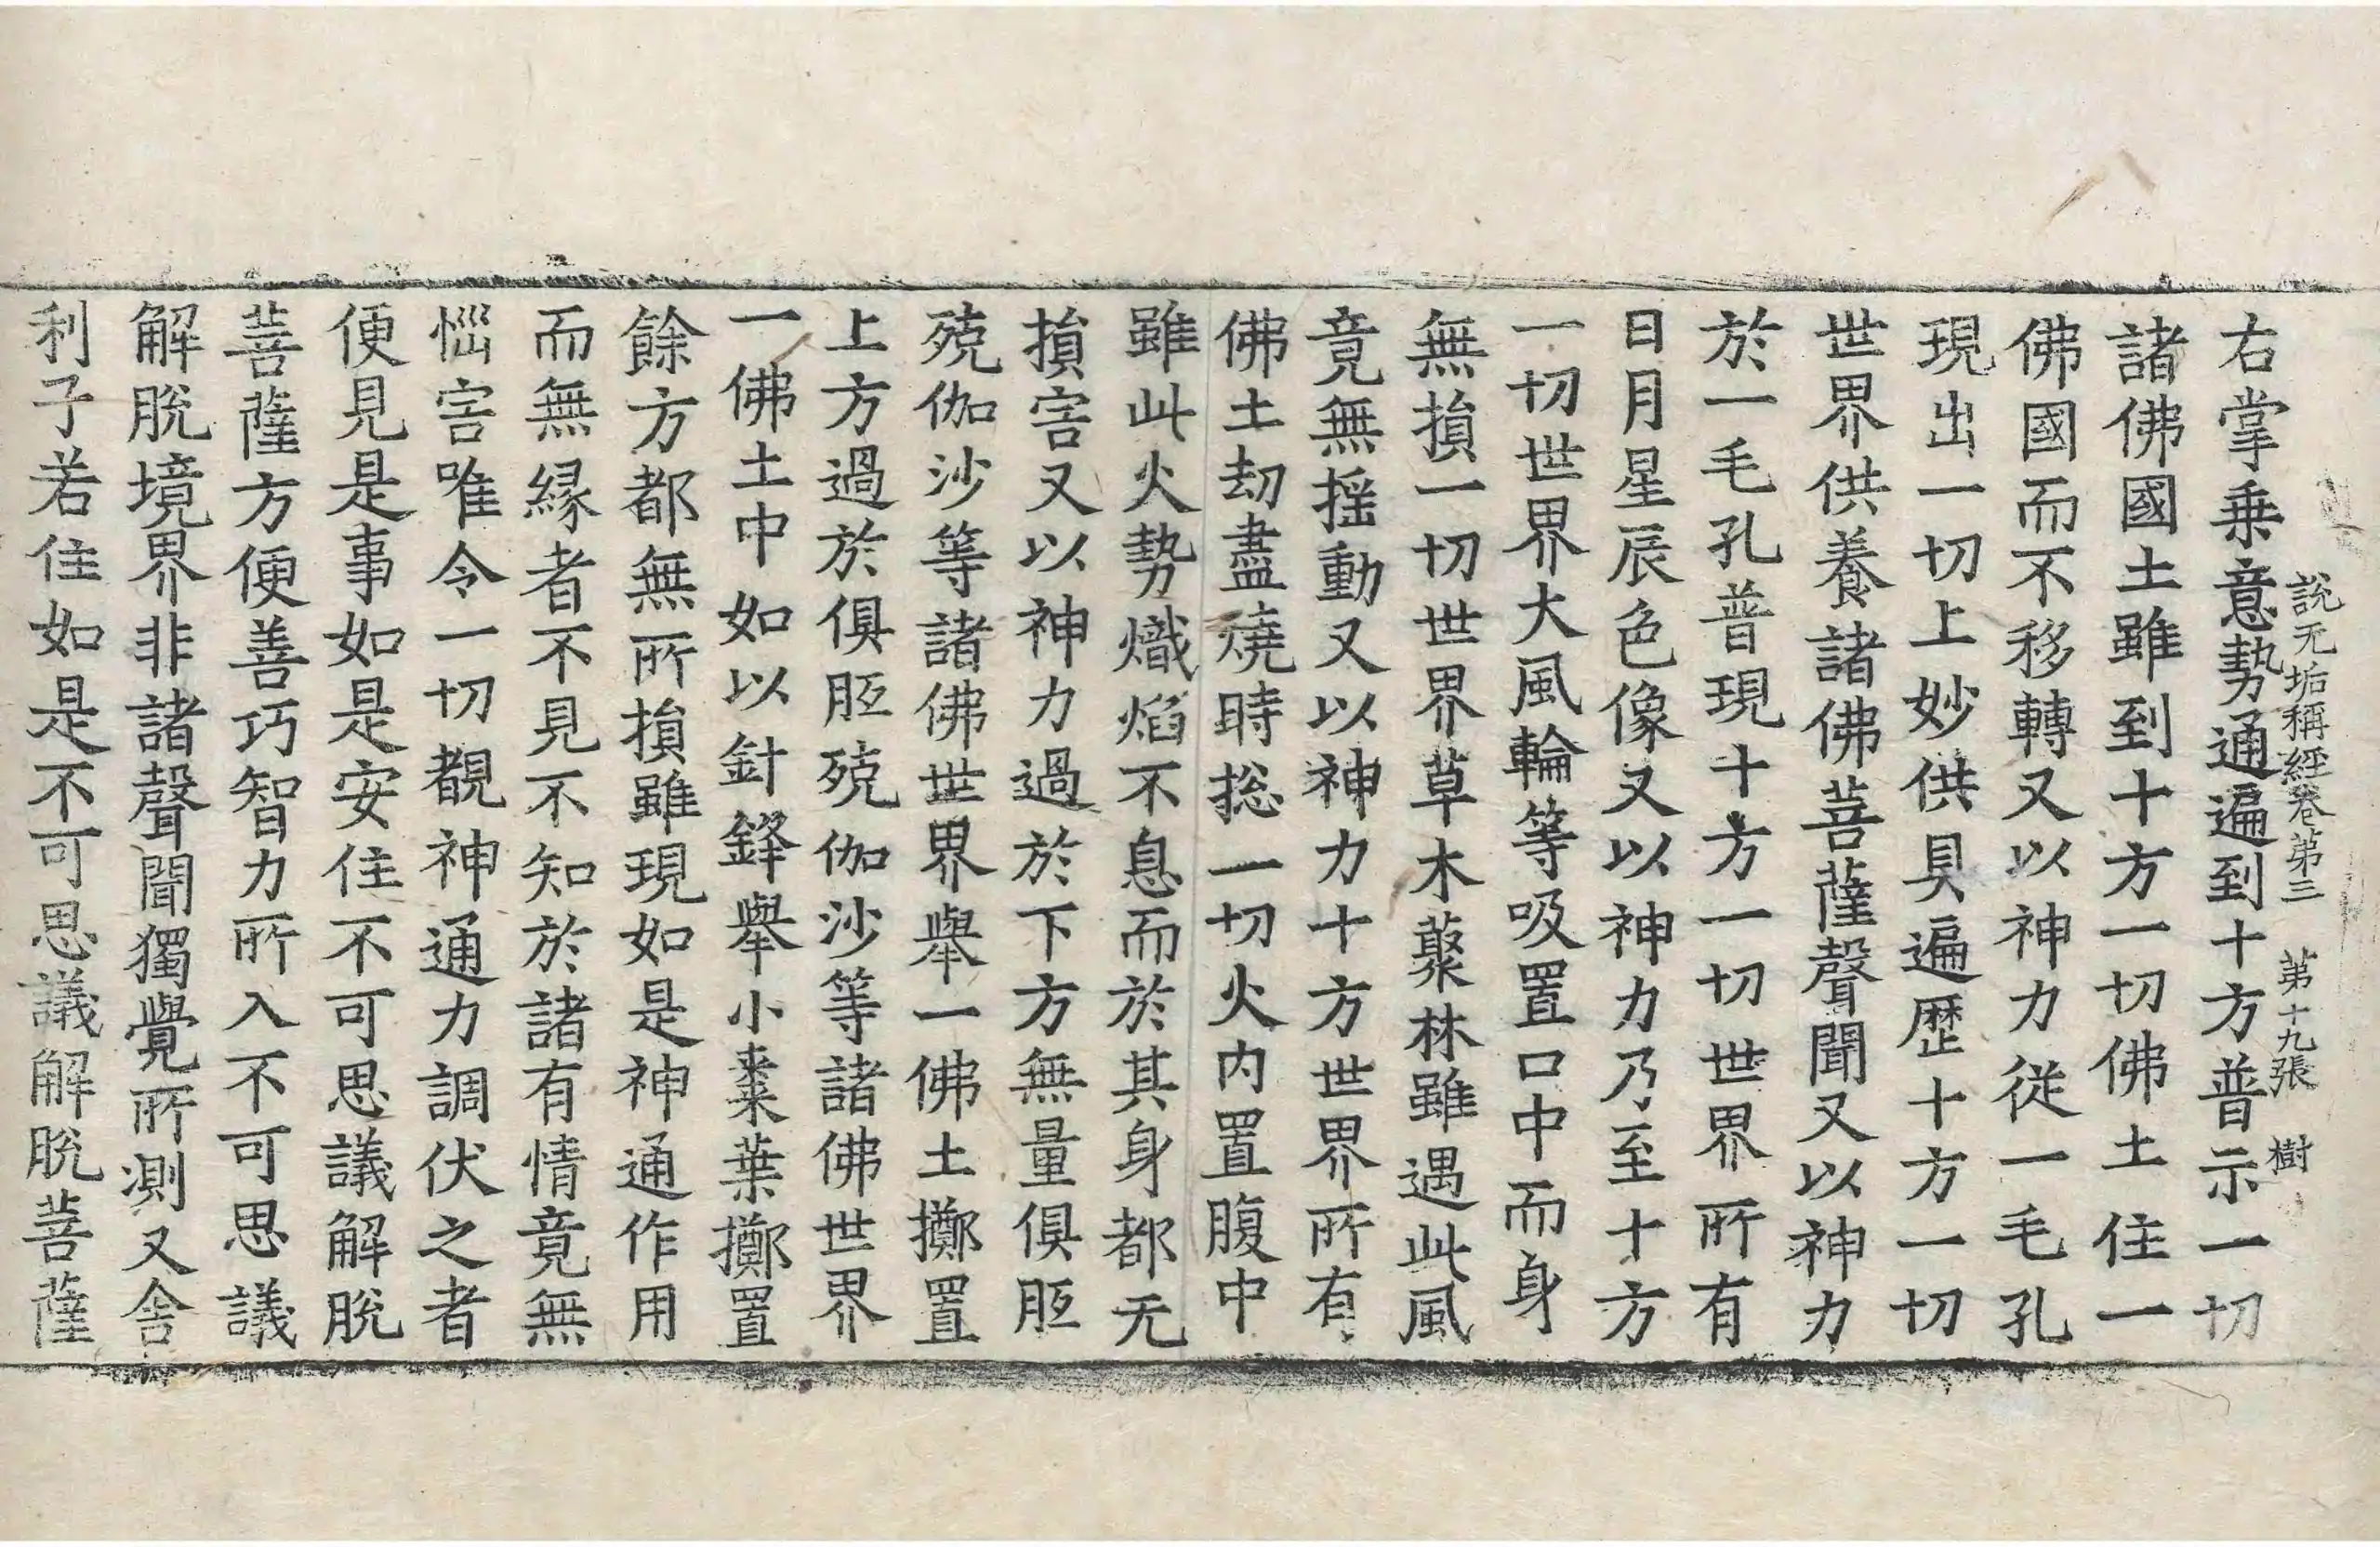 說无垢稱經卷第三 第十九張 樹
右掌乗意勢通遍到十方普示一切
諸佛國土雖到十方一切佛土住一
佛國而不移轉又以神力從一毛孔
現出一切上妙供具遍歷十方一切
世界供養諸佛菩薩聲聞又以神力
於一毛孔普現十方一切世界所有
日月星辰色像又以神力乃至十方
一切世界大風輪等吸置口中而身
無損一切世界草木藂林雖遇此風
竟無揺動又以神力十方世界所有
佛土劫盡燒時捴一切火內置腹中
雖此火勢熾焰不息而於其身都无
損害又以神力過於下方無量俱胝
殑伽沙等諸佛世界舉一佛土擲置
上方過於俱胝殑伽沙等諸佛世界
一佛土中如以針鋒舉小棗葉擲置
餘方都無所損雖現如是神通作用
而無緣者不見不知於諸有情竟無
惱害唯令一切覩神通力調伏之者
便見是事如是安住不可思議解脫
菩薩方便善巧智力所入不可思議
解脫境界非諸聲聞獨覺所測又舍
利子若住如是不可思議解脫菩薩